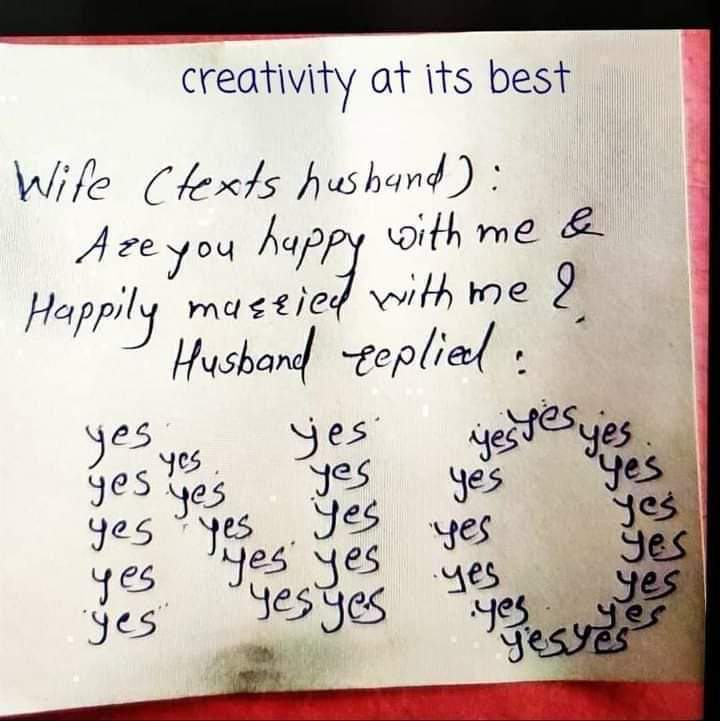 creativity at its best
Wife (texts husband):
Are you happy with me &
Happily married with me ?
Husband replied :
yes yes yes yes yes
yes yes yes yes
yes yes yes yes yes
yes yes yes yes yes
yes yes yes yes yes
yes yes yes yes yes
yes yes